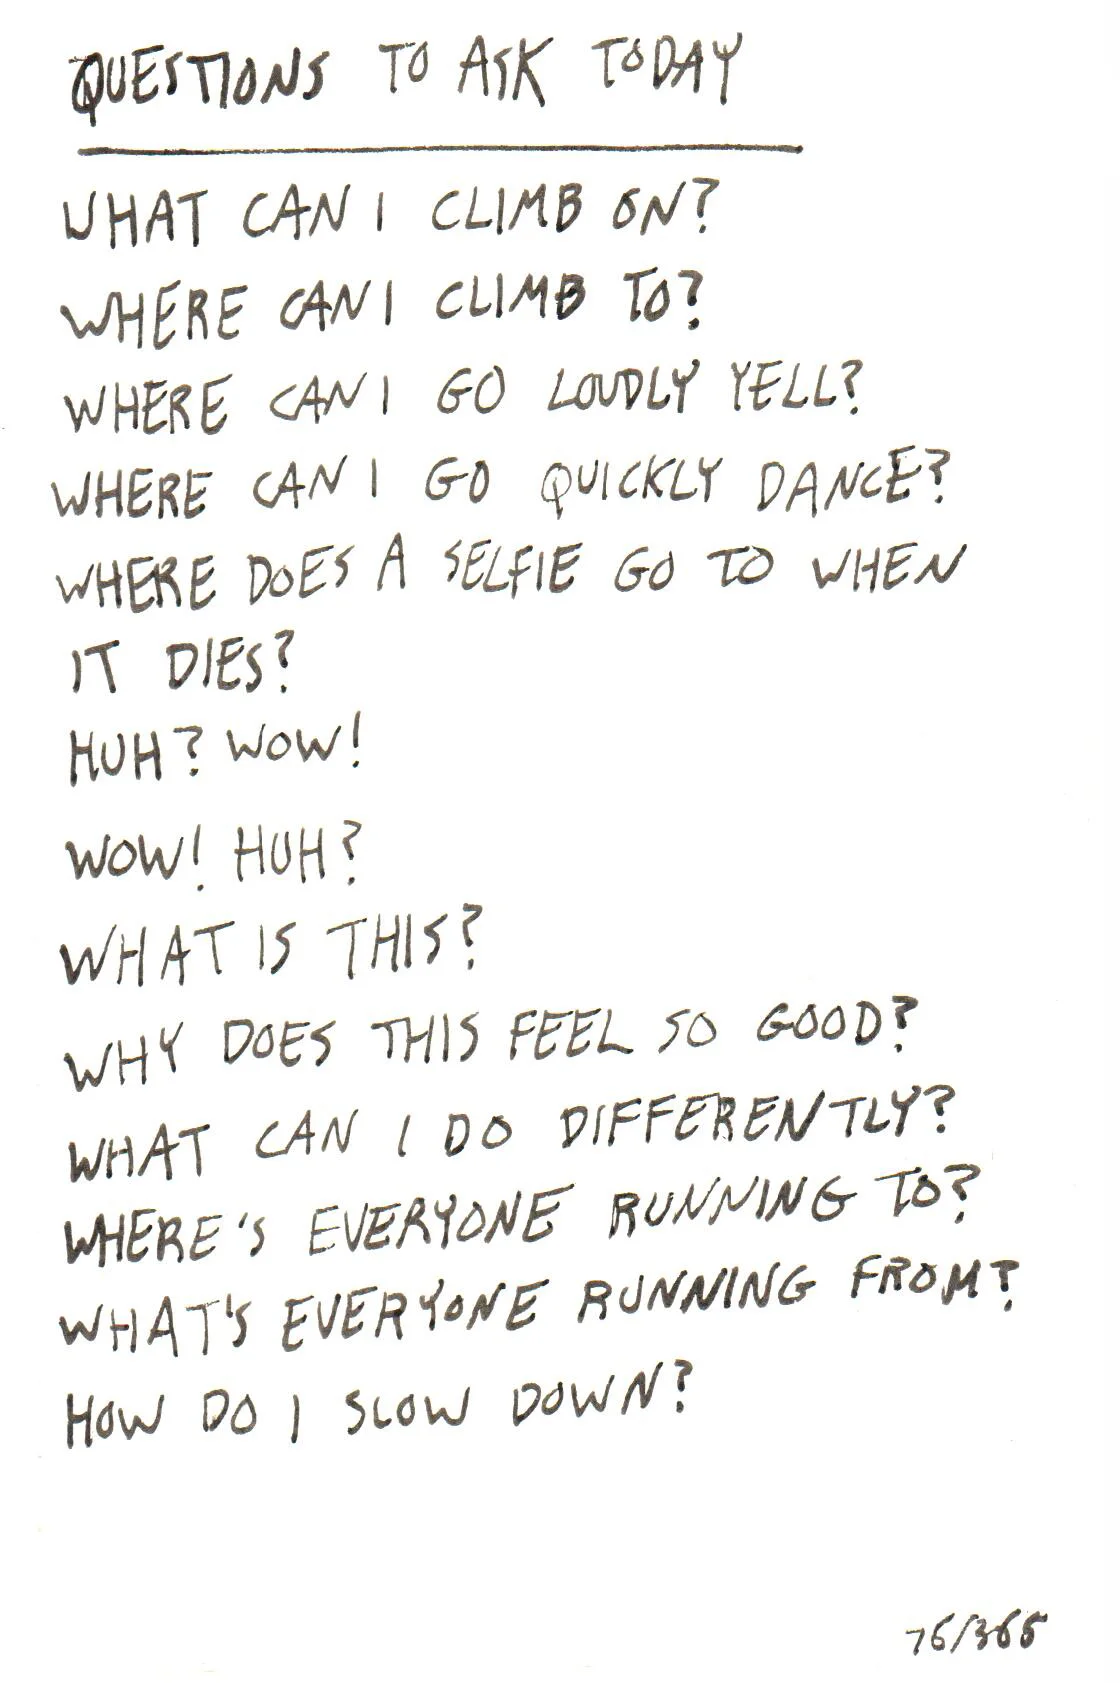 QUESTIONS TO ASK TODAY
WHAT CAN I CLIMB ON?
WHERE CAN I CLIMB TO?
WHERE CAN I GO LOUDLY YELL?
WHERE CAN I GO QUICKLY DANCE?
WHERE DOES A SELFIE GO TO WHEN
IT DIES?
HUH? WOW!
WOW! HUH?
WHAT IS THIS?
WHY DOES THIS FEEL SO GOOD?
WHAT CAN I DO DIFFERENTLY?
WHERE'S EVERYONE RUNNING TO?
WHAT'S EVERYONE RUNNING FROM?
HOW DO I SLOW DOWN?
76/365